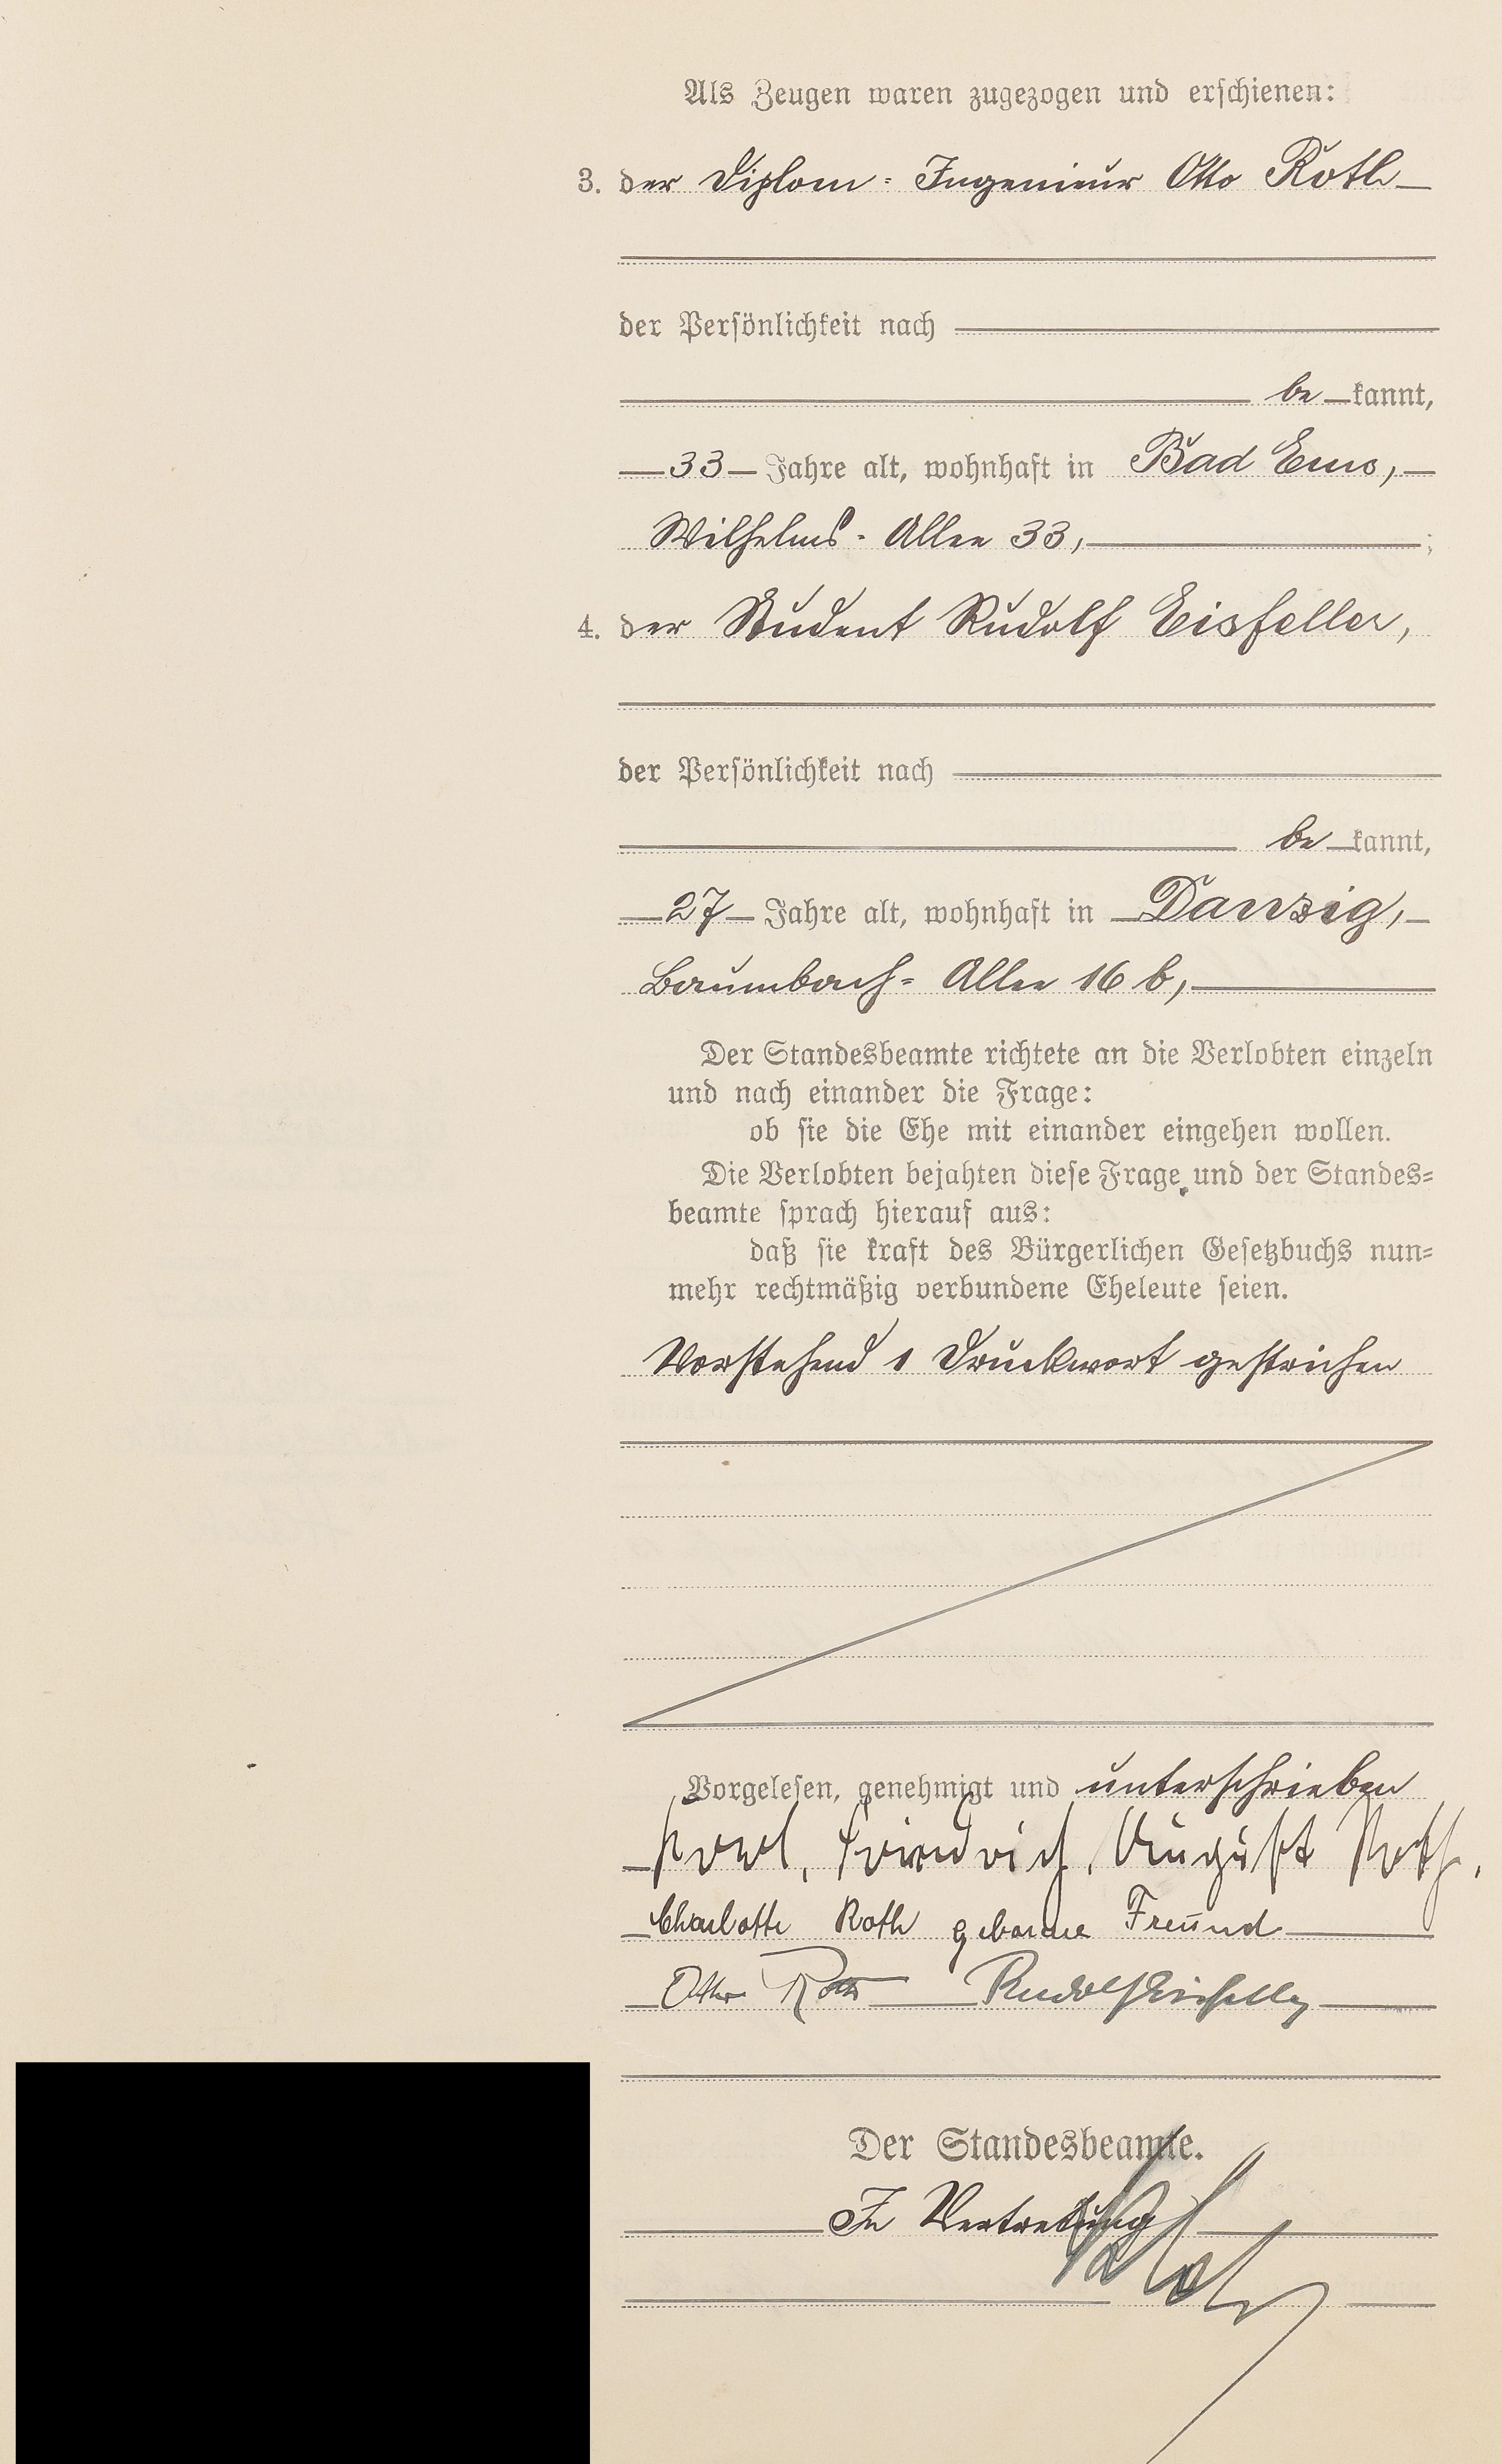 Als Zeugen waren zugezogen und erschienen:
3. der Diplom-Ingenieur Otto Roth
der Persönlichkeit nach
be kannt,
33 Jahre alt, wohnhaft in Bad Ems,
Wilhelms-Allee 33, ;
4. der Student Rudolf Eisfeller,
der Persönlichkeit nach
be kannt,
27 Jahre alt, wohnhaft in Danzig,
Baumbach-Allee 16 b,
Der Standesbeamte richtete an die Verlobten einzeln
und nach einander die Frage:
ob sie die Ehe mit einander eingehen wollen.
Die Verlobten bejahten diese Frage und der Standes-
beamte sprach hierauf aus:
daß sie kraft des Bürgerlichen Gesetzbuchs nun-
mehr rechtmäßig verbundene Eheleute seien.
Vorstehend 1 Druckwort gestrichen
Vorgelesen, genehmigt und unterschrieben
Karl, Friedrich, August Roth.
Charlotte Roth geborene Freund
Otto Roth Rudolf Eisfeller
Der Standesbeamte.
In Vertretung